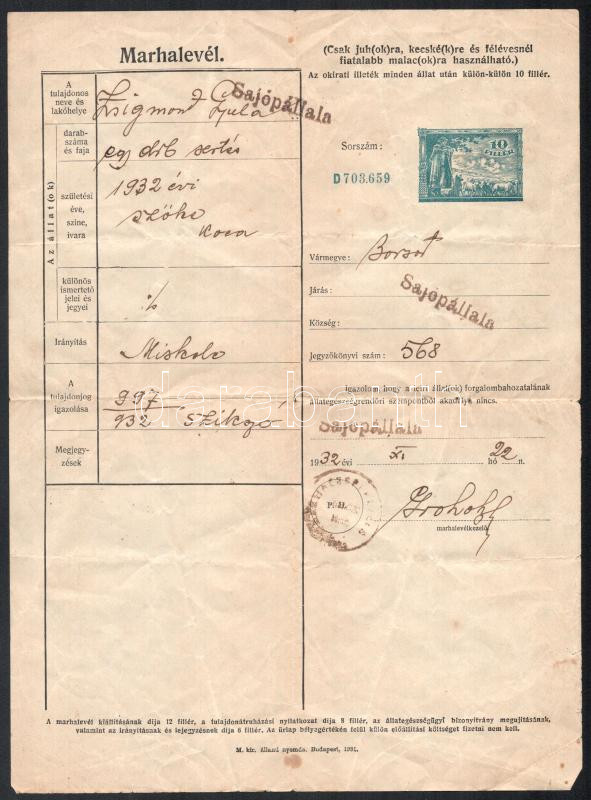 Marhalevél.
(Csak juh(ok)ra, kecské(k)re és félévesnél
fiatalabb malac(ok)ra használható.)
Az okirati illeték minden állat után külön-külön 10 fillér.
A
tulajdonos
neve és
lakóhelye
Zsigmond Gyula
Sajópállala
Az állat(ok)
darab-
száma
és faja
egy drb sertés
születési
éve,
színe,
ivara
1932 évi
szőke
koca
különös
ismertető
jelei és
jegyei
%
Irányítás
Miskolc
A
tulajdonjog
igazolása
997
932
Megjegy-
zések
Sorszám:
D703,659
10
FILLÉR
Vármegye: Borsod
Járás:
Sajópállala
Község:
Jegyzőkönyvi szám: 568
igazolom, hogy a fenti állat(ok) forgalombahozatalának
állategészségrendőri szempontból akadálya nincs.
Sajópállala
1932 évi XI. hó 22 n.
marhalevélkezelő
A marhalevél kiállításának díja 12 fillér, a tulajdonátruházási nyilatkozat díja 8 fillér, az állategészségügyi bizonyítvány megujításának,
valamint az irányításnak és lejegyzésnek díja 6 fillér. Az űrlap bélyegértékén felül külön előállítási költséget fizetni nem kell.
M. kir. állami nyomda. Budapest, 1931.
darabanth